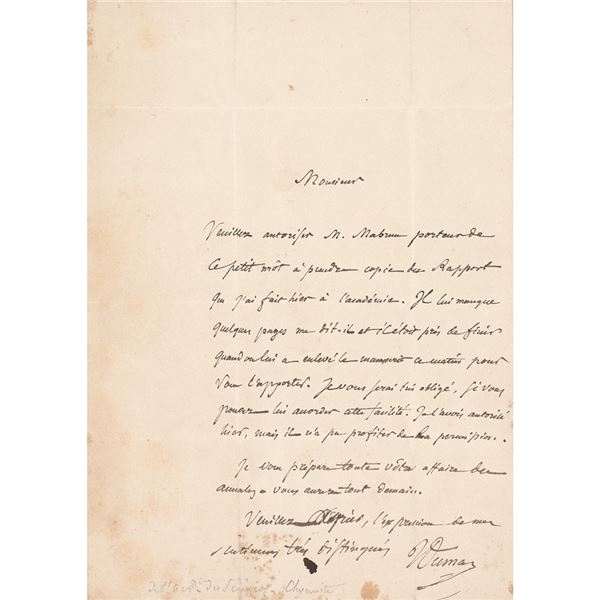 Monsieur
Veuillez autoriser M. Mabrun porteur de
ce petit mot à prendre copie du Rapport
que j'ai fait hier à l'académie. Il lui manque
quelques pages me dit-il et il étoit près de finir
quand on lui a enlevé le manuscrit ce matin pour
vous l'apporter. Je vous serai très obligé, si vous
pouvez lui accorder cette facilité. Je l'avois autorisé
hier, mais il n'a pu profiter de la permission.
Je vous prépare toute votre affaire des
annales, vous aurez tout demain.
Veuillez agréer, l'expression de mes
sentimens très distingués
Dumas
de l'acad. des Sciences - Chymiste